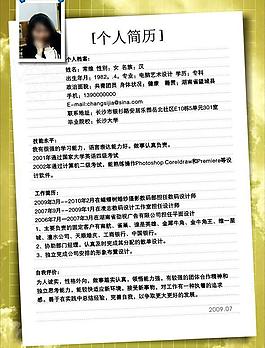 [个人简历]
个人档案:
姓名:常维 性别:女 名族:汉
出生年月:1982。.4。专业:电脑艺术设计 学历:专科
政治面貌:共青团员 身体状况:健康 籍贯:湖南省望城县
手机:1390000000
E-mail:changsijia@sina.com
联系地址:长沙市银杉路安居乐茵岳北社区E10栋5单元301室
毕业院校:长沙大学
技能水平:
我有很强的学习能力、语言表达能力好。做事认真负责。
2001年通过国家大学英语四级考试
2002年通过计算机二级考试,能熟练操作Photoshop Coreldraw和Premiere等设
计软件。
工作简历:
2009年3月--2010年2月在蝴蝶树婚纱摄影数码部担任数码设计师
2007年9月--2009年1月在凌志数码设计工作室担任设计师
2006年7月—2007年3月在湖南省劲视广告有限公司担任平面设计
1、主要负责的固定客户有肯航、雀巢、浪居英雄、金犀牛角、金牛角王、维一星
城、清水公司、天顺婚庆、工商银行、中国银行。
2、协助部门经理、认真及时完成其分配的数单设计。
3、独立完成公司安排的形象布置设计。
自我评价:
为人诚实,性格外向,做事踏实认真,领悟能力强。有较强的团体合作精神和
独立思考能力。能较快适应新环境、接受新事物,对工作有一种执着的追求
感。善于在实践中总结经验,完善自我,以争取更大更好的发展。
2009.07